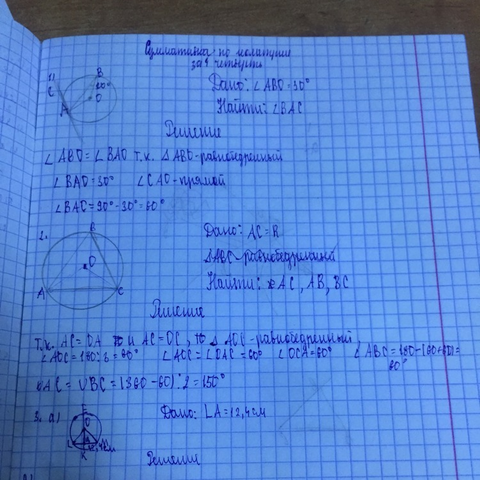 за 4 четверть
1)
B
C
30°
O
A
Дано: ∠ABO = 30°
Найти: ∠BAC
Решение
∠ABO = ∠BAO т.к. △ABO - равнобедренный
∠BAO = 30° ∠CAO - прямой
∠BAC = 90° - 30° = 60°
2.
B
O
A C
Дано: AC = R
△ABC - равнобедренный
Найти: AC, AB, BC
Решение
т.к. AC = OA и AC = OC, то △AOC - равнобедренный,
∠AOC = 180 : 3 = 60° ∠OAC = 60° ∠OCA = 60°
∪BC = (360 - 60) : 2 = 150°
3. а)
Дано: LA = 12,4 см
Решение